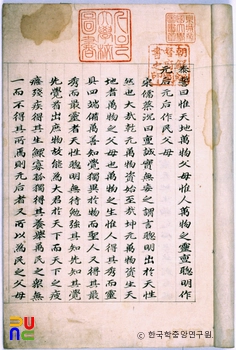 泰誓曰惟天地萬物父母惟人萬物之靈亶聰明作
元后元后作民父母
宋儒蔡沈曰亶誠實無妄之謂言聰明出於天性
然也大哉乾元萬物資始至哉坤元萬物資生天
地者萬物之父母也萬物之生惟人得其秀而靈
具四端備萬善知覺獨異於物而聖人又得其最
秀而最靈者天性聰明無待勉強其知先知其覺
先覺首出庶物故能為大君於天下而天下之疲
癃殘疾得其生鰥寡孤獨得其養舉萬民之衆無
一而不得其所焉則元后者又所以為民之父母
ⓒ 한국학중앙연구원